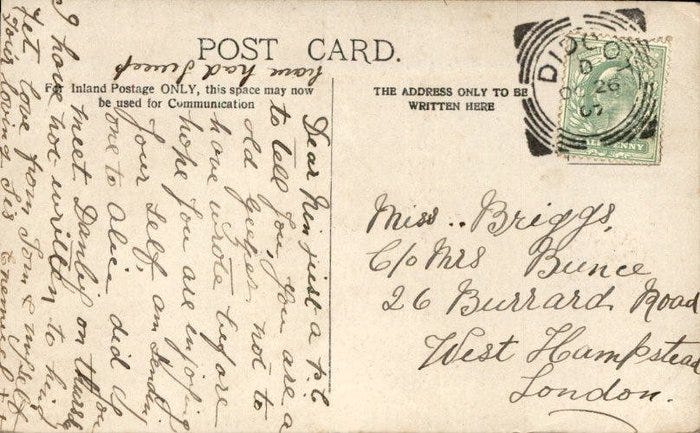 POST CARD.
For Inland Postage ONLY, this space may now
be used for Communication
THE ADDRESS ONLY TO BE
WRITTEN HERE
DIDCOT
D
26
07
PENNY
Dear just a p.c
to tell you, you are a
old not to
have wrote before
hope you are injoying
your self am
one to Alice did you
meet Danby on
I have not written to him
yet love from Tom & myself
Your loving Sis
have had
Miss.. Briggs,
C/o Mrs Bunce
26 Burrard Road
West Hampstead
London.